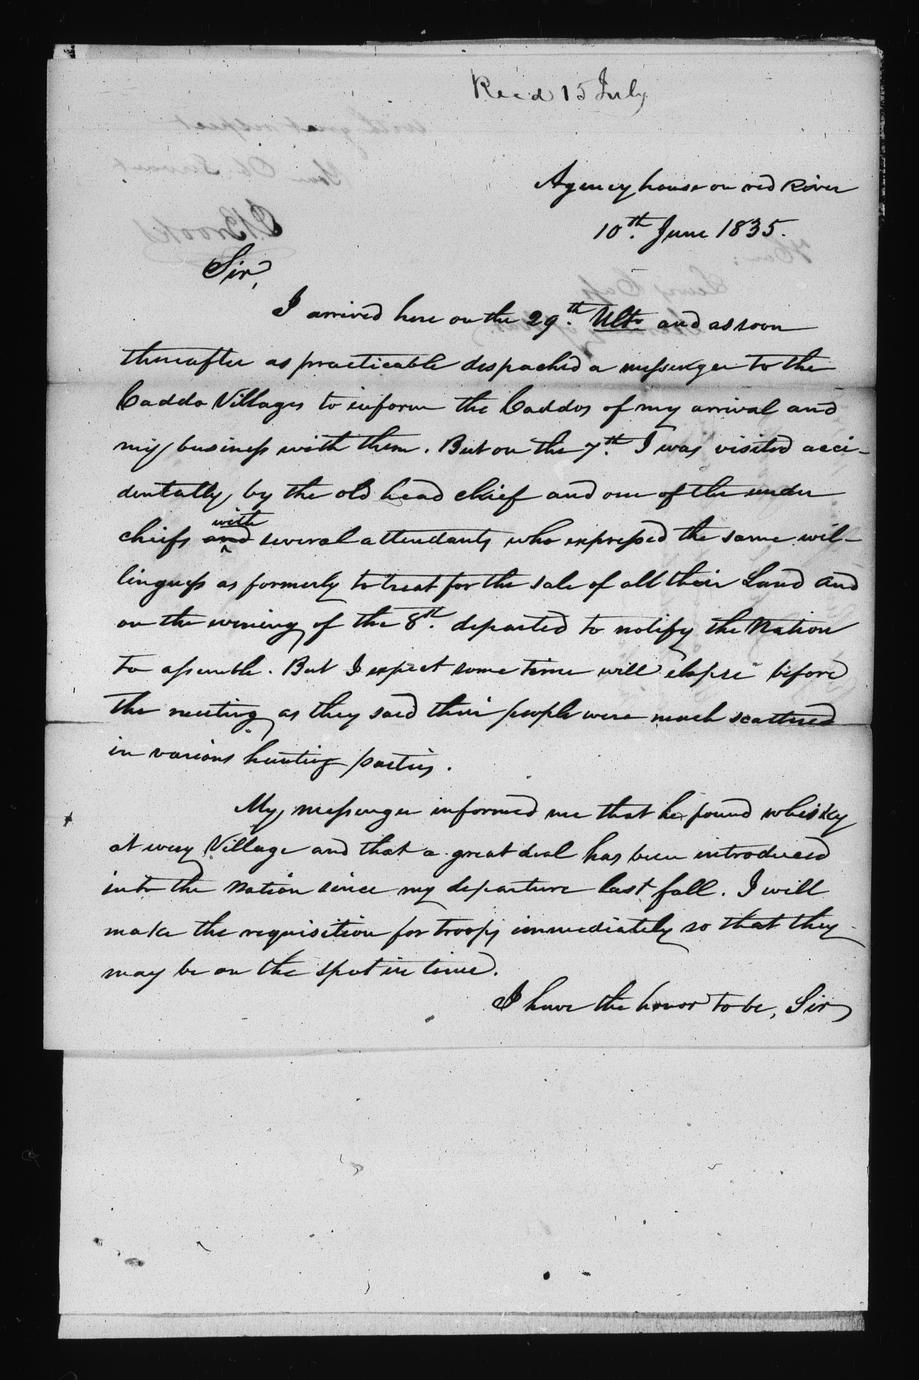 Recd 15 July
Agency house on red River
10th. June 1835.
Sir,
I arrived here on the 29th. Ulto. and as soon
thereafter as practicable despached a messenger to the
Caddo Villages to inform the Caddos of my arrival and
my business with them. But on the 7th. I was visited acci-
dentally by the old head chief and one of the under
chiefs and with several attendants who expressed the same wil-
lingness as formerly to treat for the sale of all their Land and
on the evening of the 8th. departed to notify the Nation
to assemble. But I expect some time will elapse before
the meeting as they said their people were much scattered
in various hunting parties.
My messenger informed me that he found whiskey
at every Village and that a great deal has been introduced
into the Nation since my departure last fall. I will
make the requisition for troops immediately so that they
may be on the spot in time.
I have the honor to be, Sir,